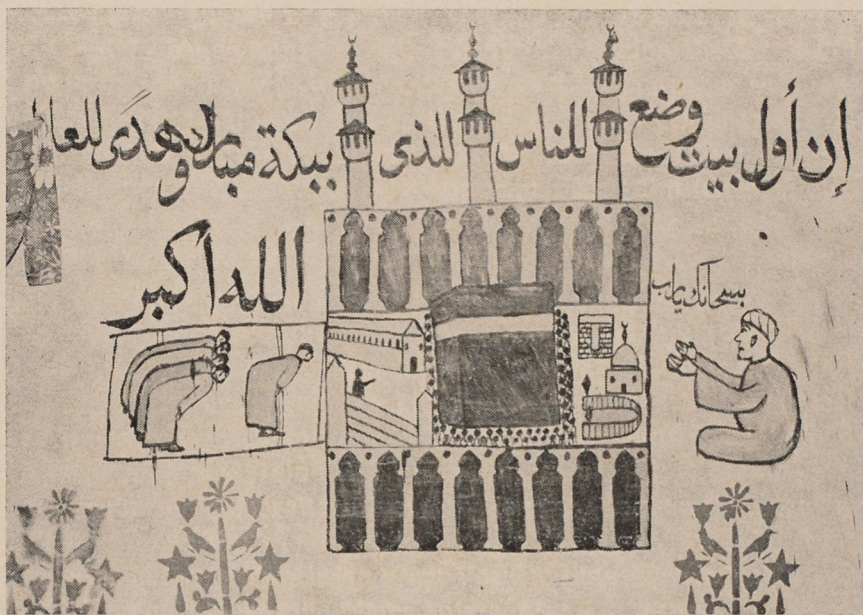 إن أول بيت وضع للناس للذى ببكة مباركا وهدًى للعا
الله اكبر
سبحانك يارب